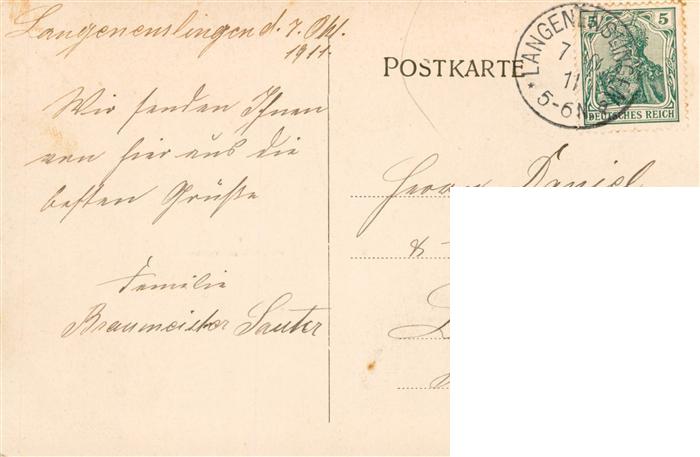 Langenenslingen d. 7. Okt.
1911.
Wir senden Ihnen
von hier aus die
besten Grüße
Familie
Braumeister Sauter
POSTKARTE
LANGENENSLINGEN
7
11
5-6N.
5
DEUTSCHES REICH
Herrn Daniel